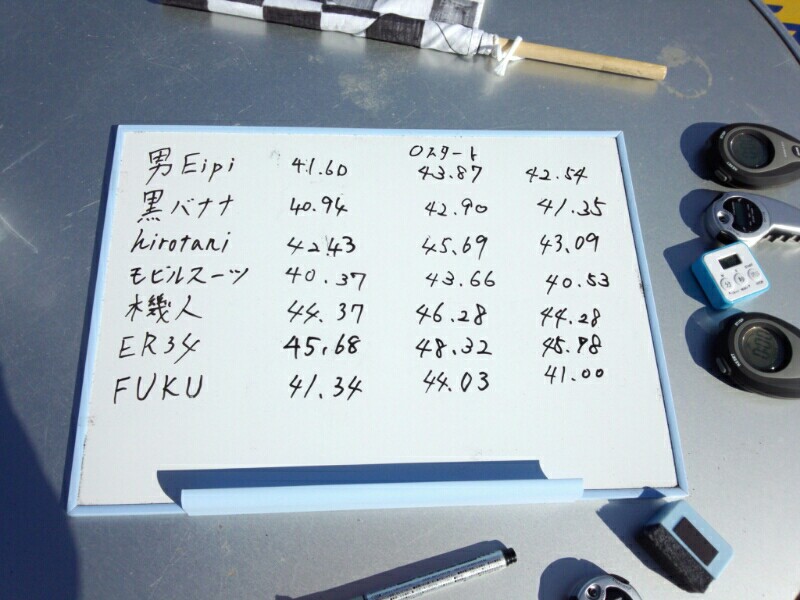 0スタート
男Eipi 41.60 43.87 42.54
黒バナナ 40.94 42.90 41.35
hirotani 42.43 45.69 43.09
モビルスーツ 40.37 43.66 40.53
機人 44.37 46.28 44.28
ER34 45.68 48.32 45.98
FUKU 41.34 44.03 41.00